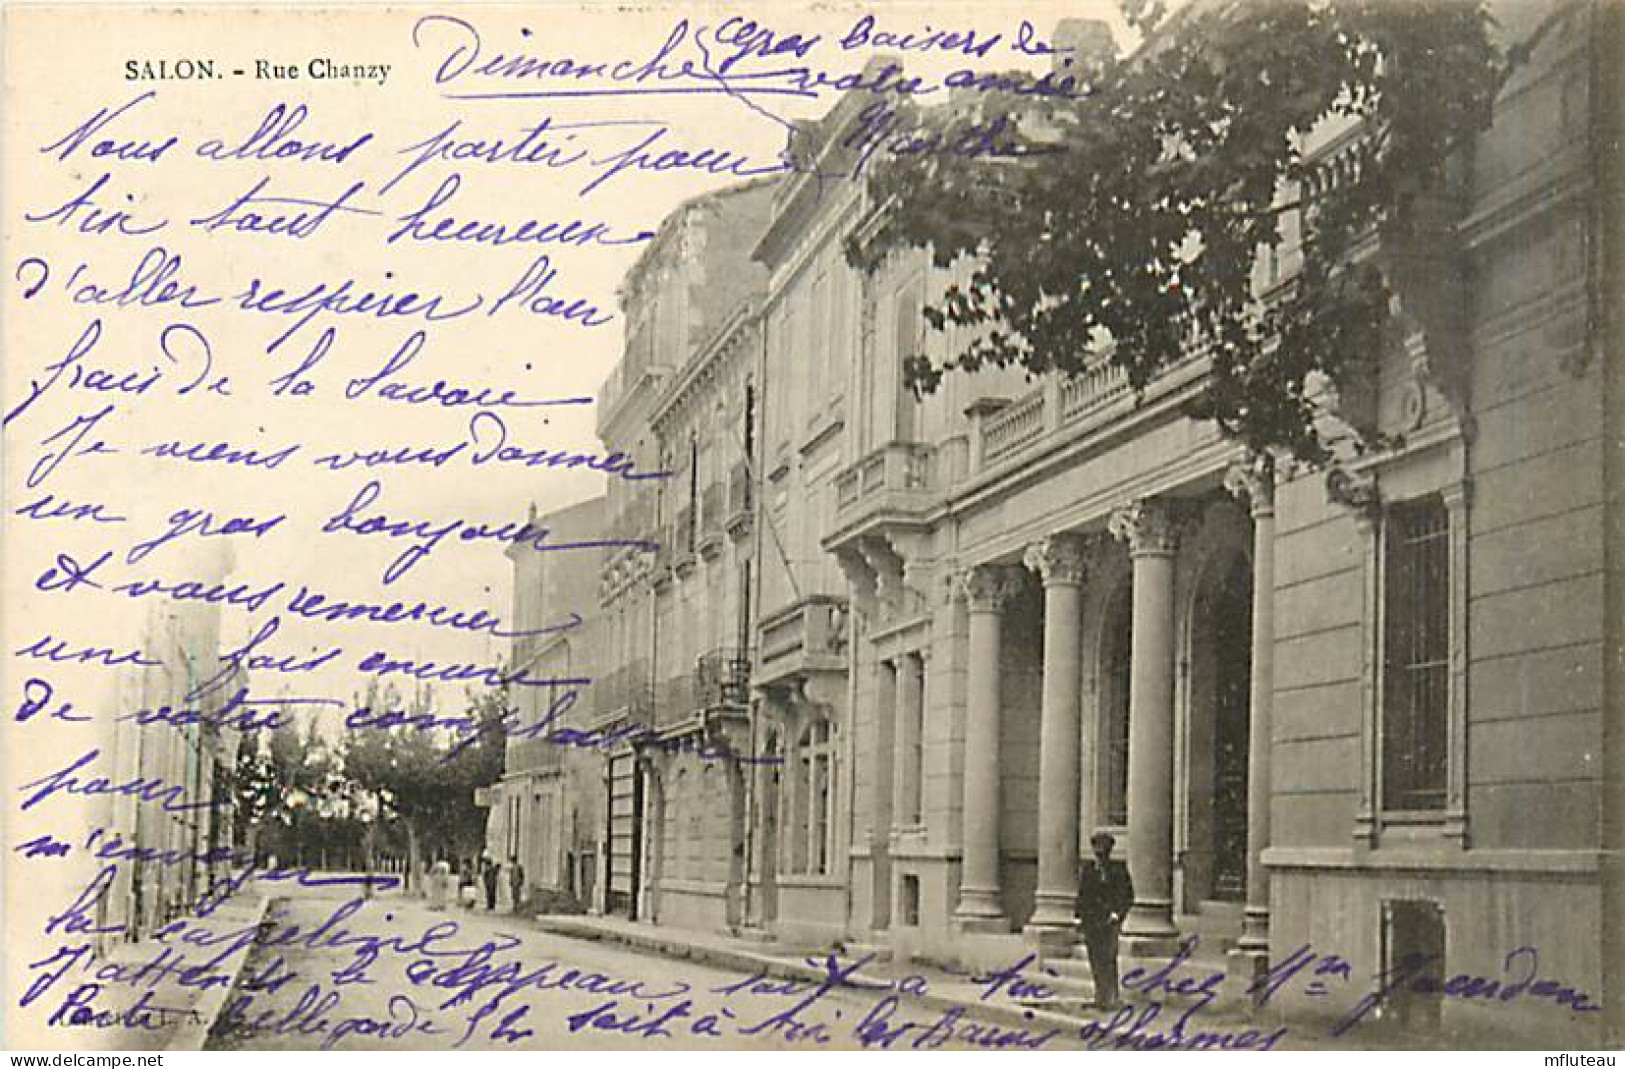 SALON. - Rue Chanzy
Dimanche
Gros baisers de
votre amie
Marthe
Nous allons partir pour
Aix tout heureux
d'aller respirer l'air
frais de la Savoie
Je viens vous donner
un gros bonjour
et vous remercier
une fois encore
de votre complaisance
pour
m'envoyer
la capeline
J'attends le chappeau soit à Aix chez Mme
Porte Bellegarde soit à Aix les Bains Thermes
mfluteau